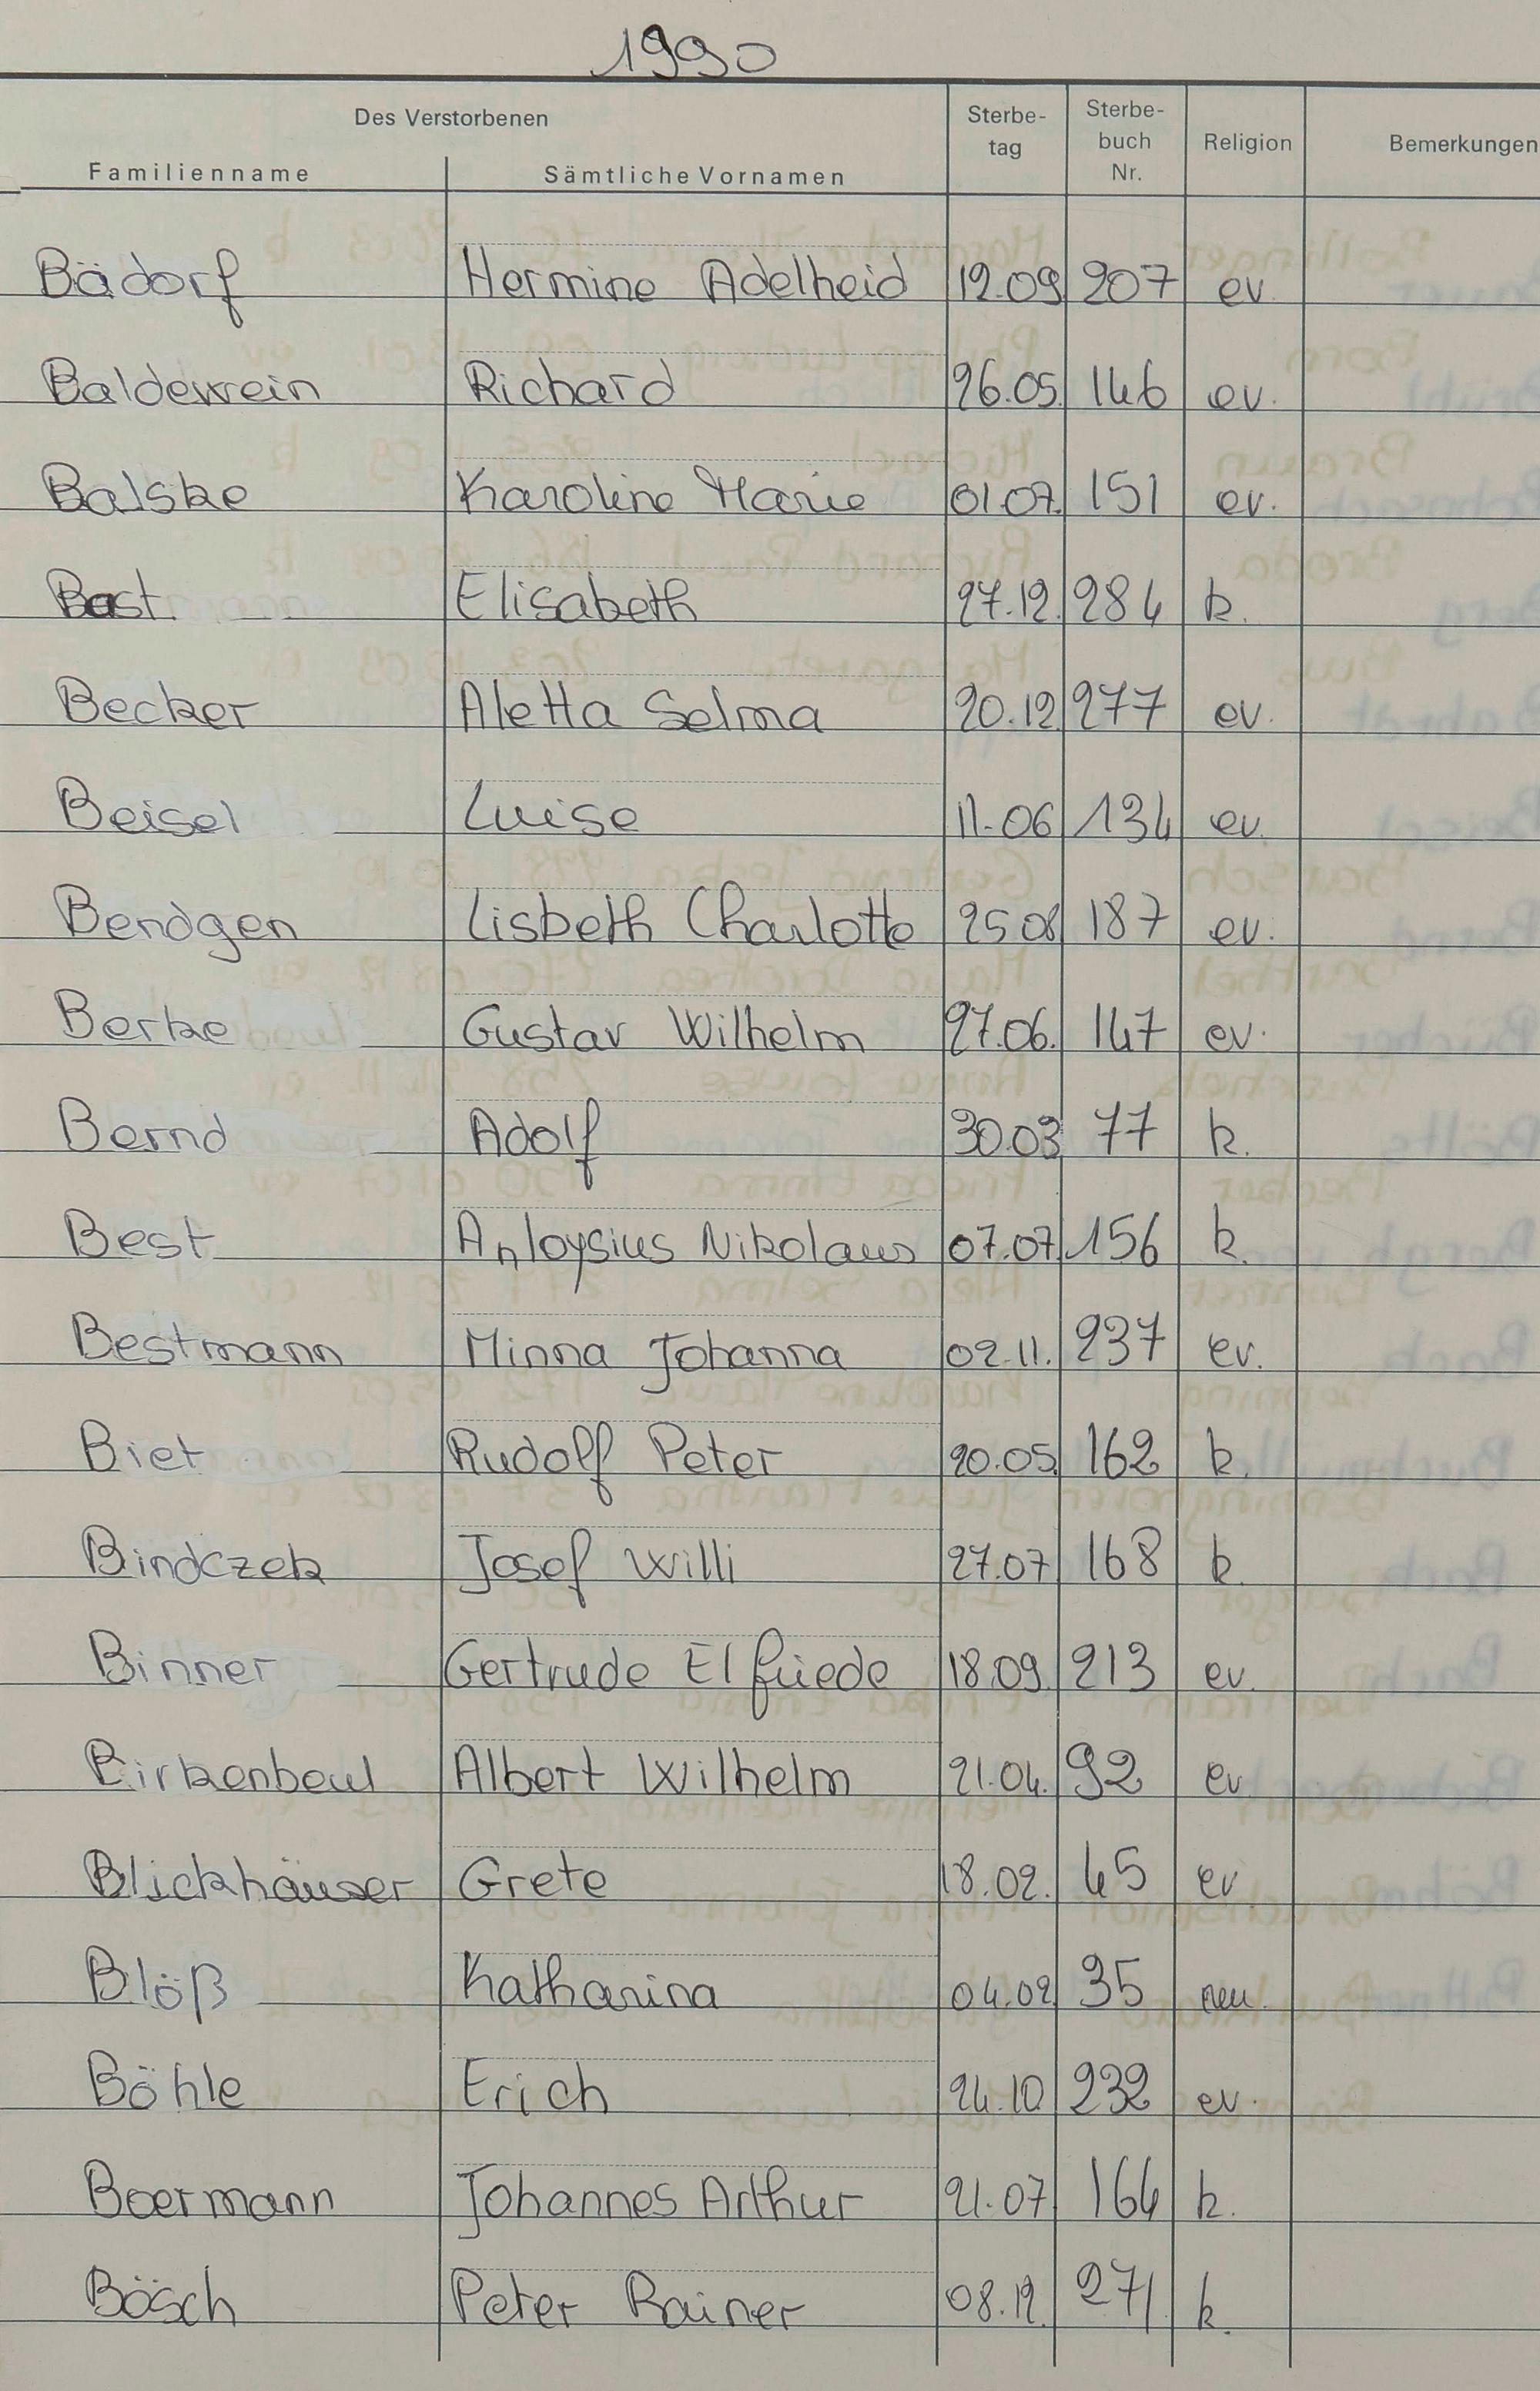 1990
Des Verstorbenen
Familienname Sämtliche Vornamen Sterbe-tag Sterbe-buch Nr. Religion Bemerkungen
Bädorf Hermine Adelheid 12.09 207 ev
Baldewein Richard 26.05. 146 ev.
Balske Karoline Marie 01.07. 151 ev.
Bast Elisabeth 27.12. 284 k.
Becker Aletta Selma 20.12 277 ev.
Beisel Luise 11.06 134 ev.
Bendgen Lisbeth Charlotte 25.08 187 ev.
Berke Gustav Wilhelm 27.06. 147 ev.
Bernd Adolf 30.03 77 k.
Best Anloysius Nikolaus 07.07. 156 k.
Bestmann Minna Johanna 02.11. 237 ev.
Biet Rudolf Peter 20.05. 162 k.
Bindczek Josef Willi 27.07 168 k.
Binner Gertrude Elfriede 18.09. 213 ev.
Birkenbeul Albert Wilhelm 21.04. 92 ev
Blickhäuser Grete 18.02. 45 ev
Blöß Katharina 04.02 35
Böhle Erich 24.10 232 ev.
Boermann Johannes Arthur 21.07 164 k.
Bösch Peter Rainer 08.12. 271 k.